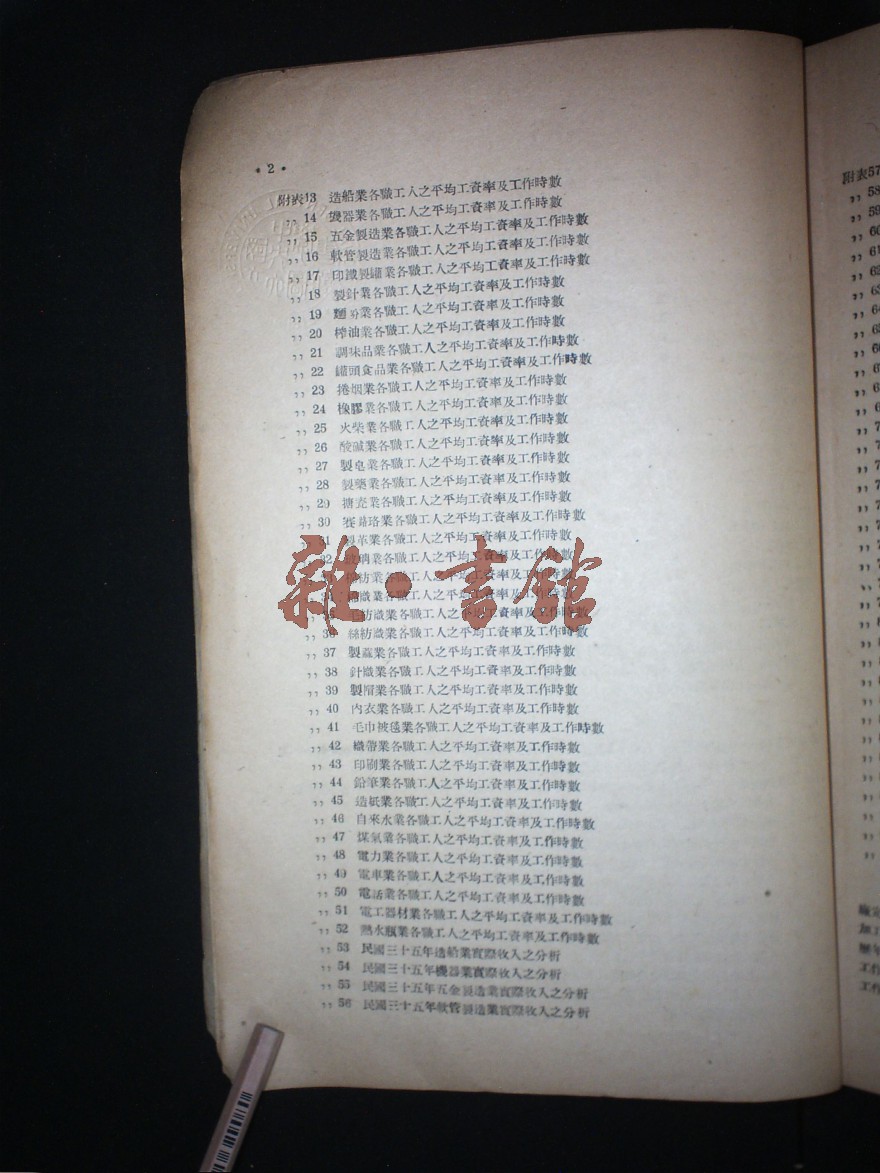 • 2 •
附表13 造船業各職工人之平均工資率及工作時數
,, 14 機器業各職工人之平均工資率及工作時數
,, 15 五金製造業各職工人之平均工資率及工作時數
,, 16 軟管製造業各職工人之平均工資率及工作時數
,, 17 印鐵製罐業各職工人之平均工資率及工作時數
,, 18 製針業各職工人之平均工資率及工作時數
,, 19 麵粉業各職工人之平均工資率及工作時數
,, 20 榨油業各職工人之平均工資率及工作時數
,, 21 調味品業各職工人之平均工資率及工作時數
,, 22 罐頭食品業各職工人之平均工資率及工作時數
,, 23 捲烟業各職工人之平均工資率及工作時數
,, 24 橡膠業各職工人之平均工資率及工作時數
,, 25 火柴業各職工人之平均工資率及工作時數
,, 26 酸鹼業各職工人之平均工資率及工作時數
,, 27 製皂業各職工人之平均工資率及工作時數
,, 28 製藥業各職工人之平均工資率及工作時數
,, 29 搪瓷業各職工人之平均工資率及工作時數
,, 30 賽璐珞業各職工人之平均工資率及工作時數
,, 31 製革業各職工人之平均工資率及工作時數
,, 32 玻璃業各職工人之平均工資率及工作時數
紡業各職工人之平均工資率及工作時數
織業各職工人之平均工資率及工作時數
紡織業各職工人之平均工資率及工作時數
,, 36 絲紡織業各職工人之平均工資率及工作時數
,, 37 製蔴業各職工人之平均工資率及工作時數
,, 38 針織業各職工人之平均工資率及工作時數
,, 39 製帽業各職工人之平均工資率及工作時數
,, 40 內衣業各職工人之平均工資率及工作時數
,, 41 毛巾被毯業各職工人之平均工資率及工作時數
,, 42 織帶業各職工人之平均工資率及工作時數
,, 43 印刷業各職工人之平均工資率及工作時數
,, 44 鉛筆業各職工人之平均工資率及工作時數
,, 45 造紙業各職工人之平均工資率及工作時數
,, 46 自來水業各職工人之平均工資率及工作時數
,, 47 煤氣業各職工人之平均工資率及工作時數
,, 48 電力業各職工人之平均工資率及工作時數
,, 49 電車業各職工人之平均工資率及工作時數
,, 50 電話業各職工人之平均工資率及工作時數
,, 51 電工器材業各職工人之平均工資率及工作時數
,, 52 熱水瓶業各職工人之平均工資率及工作時數
,, 53 民國三十五年造船業實際收入之分析
,, 54 民國三十五年機器業實際收入之分析
,, 55 民國三十五年五金製造業實際收入之分析
,, 56 民國三十五年軟管製造業實際收入之分析
雜·書館
附表57
,, 58
,, 59
,, 60
,, 61